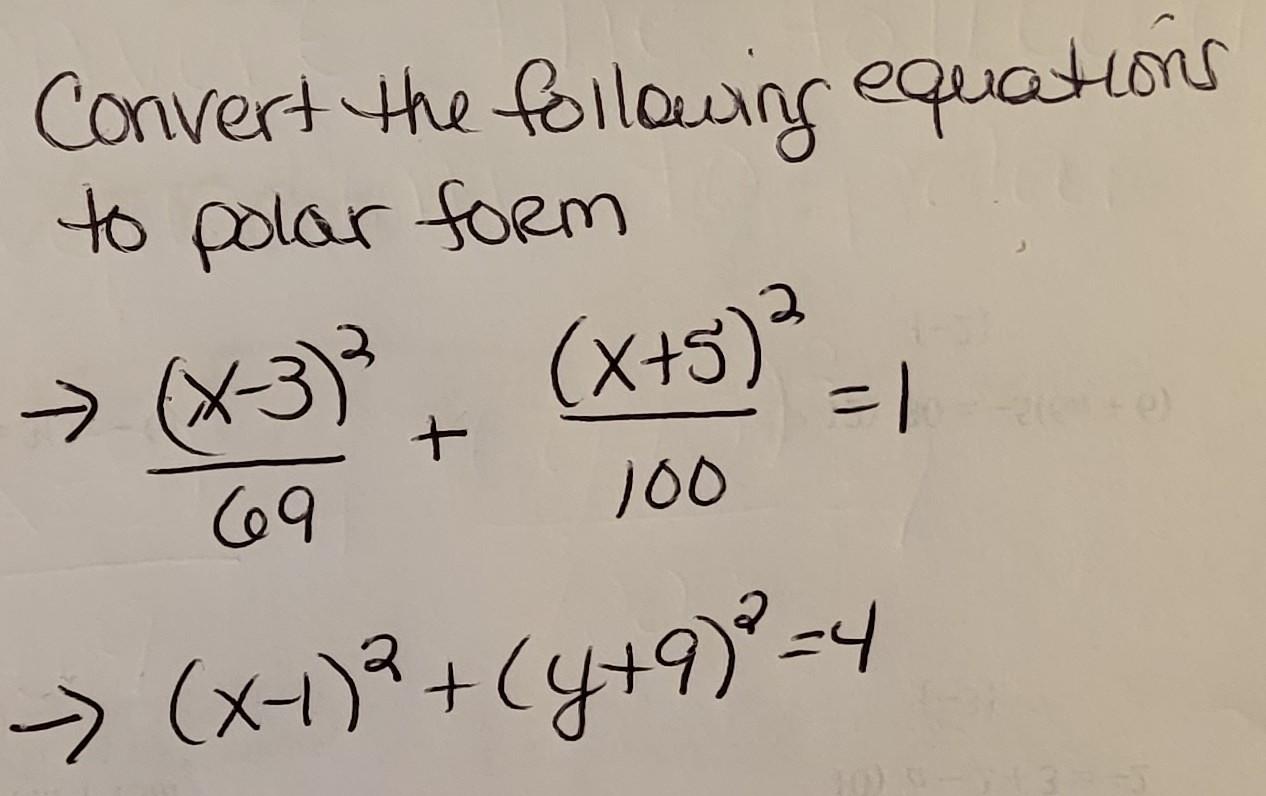 Convert the following equations
to polar form
→ (x-3)²/69 + (x+5)²/100 = 1
→ (x-1)² + (y+9)² = 4